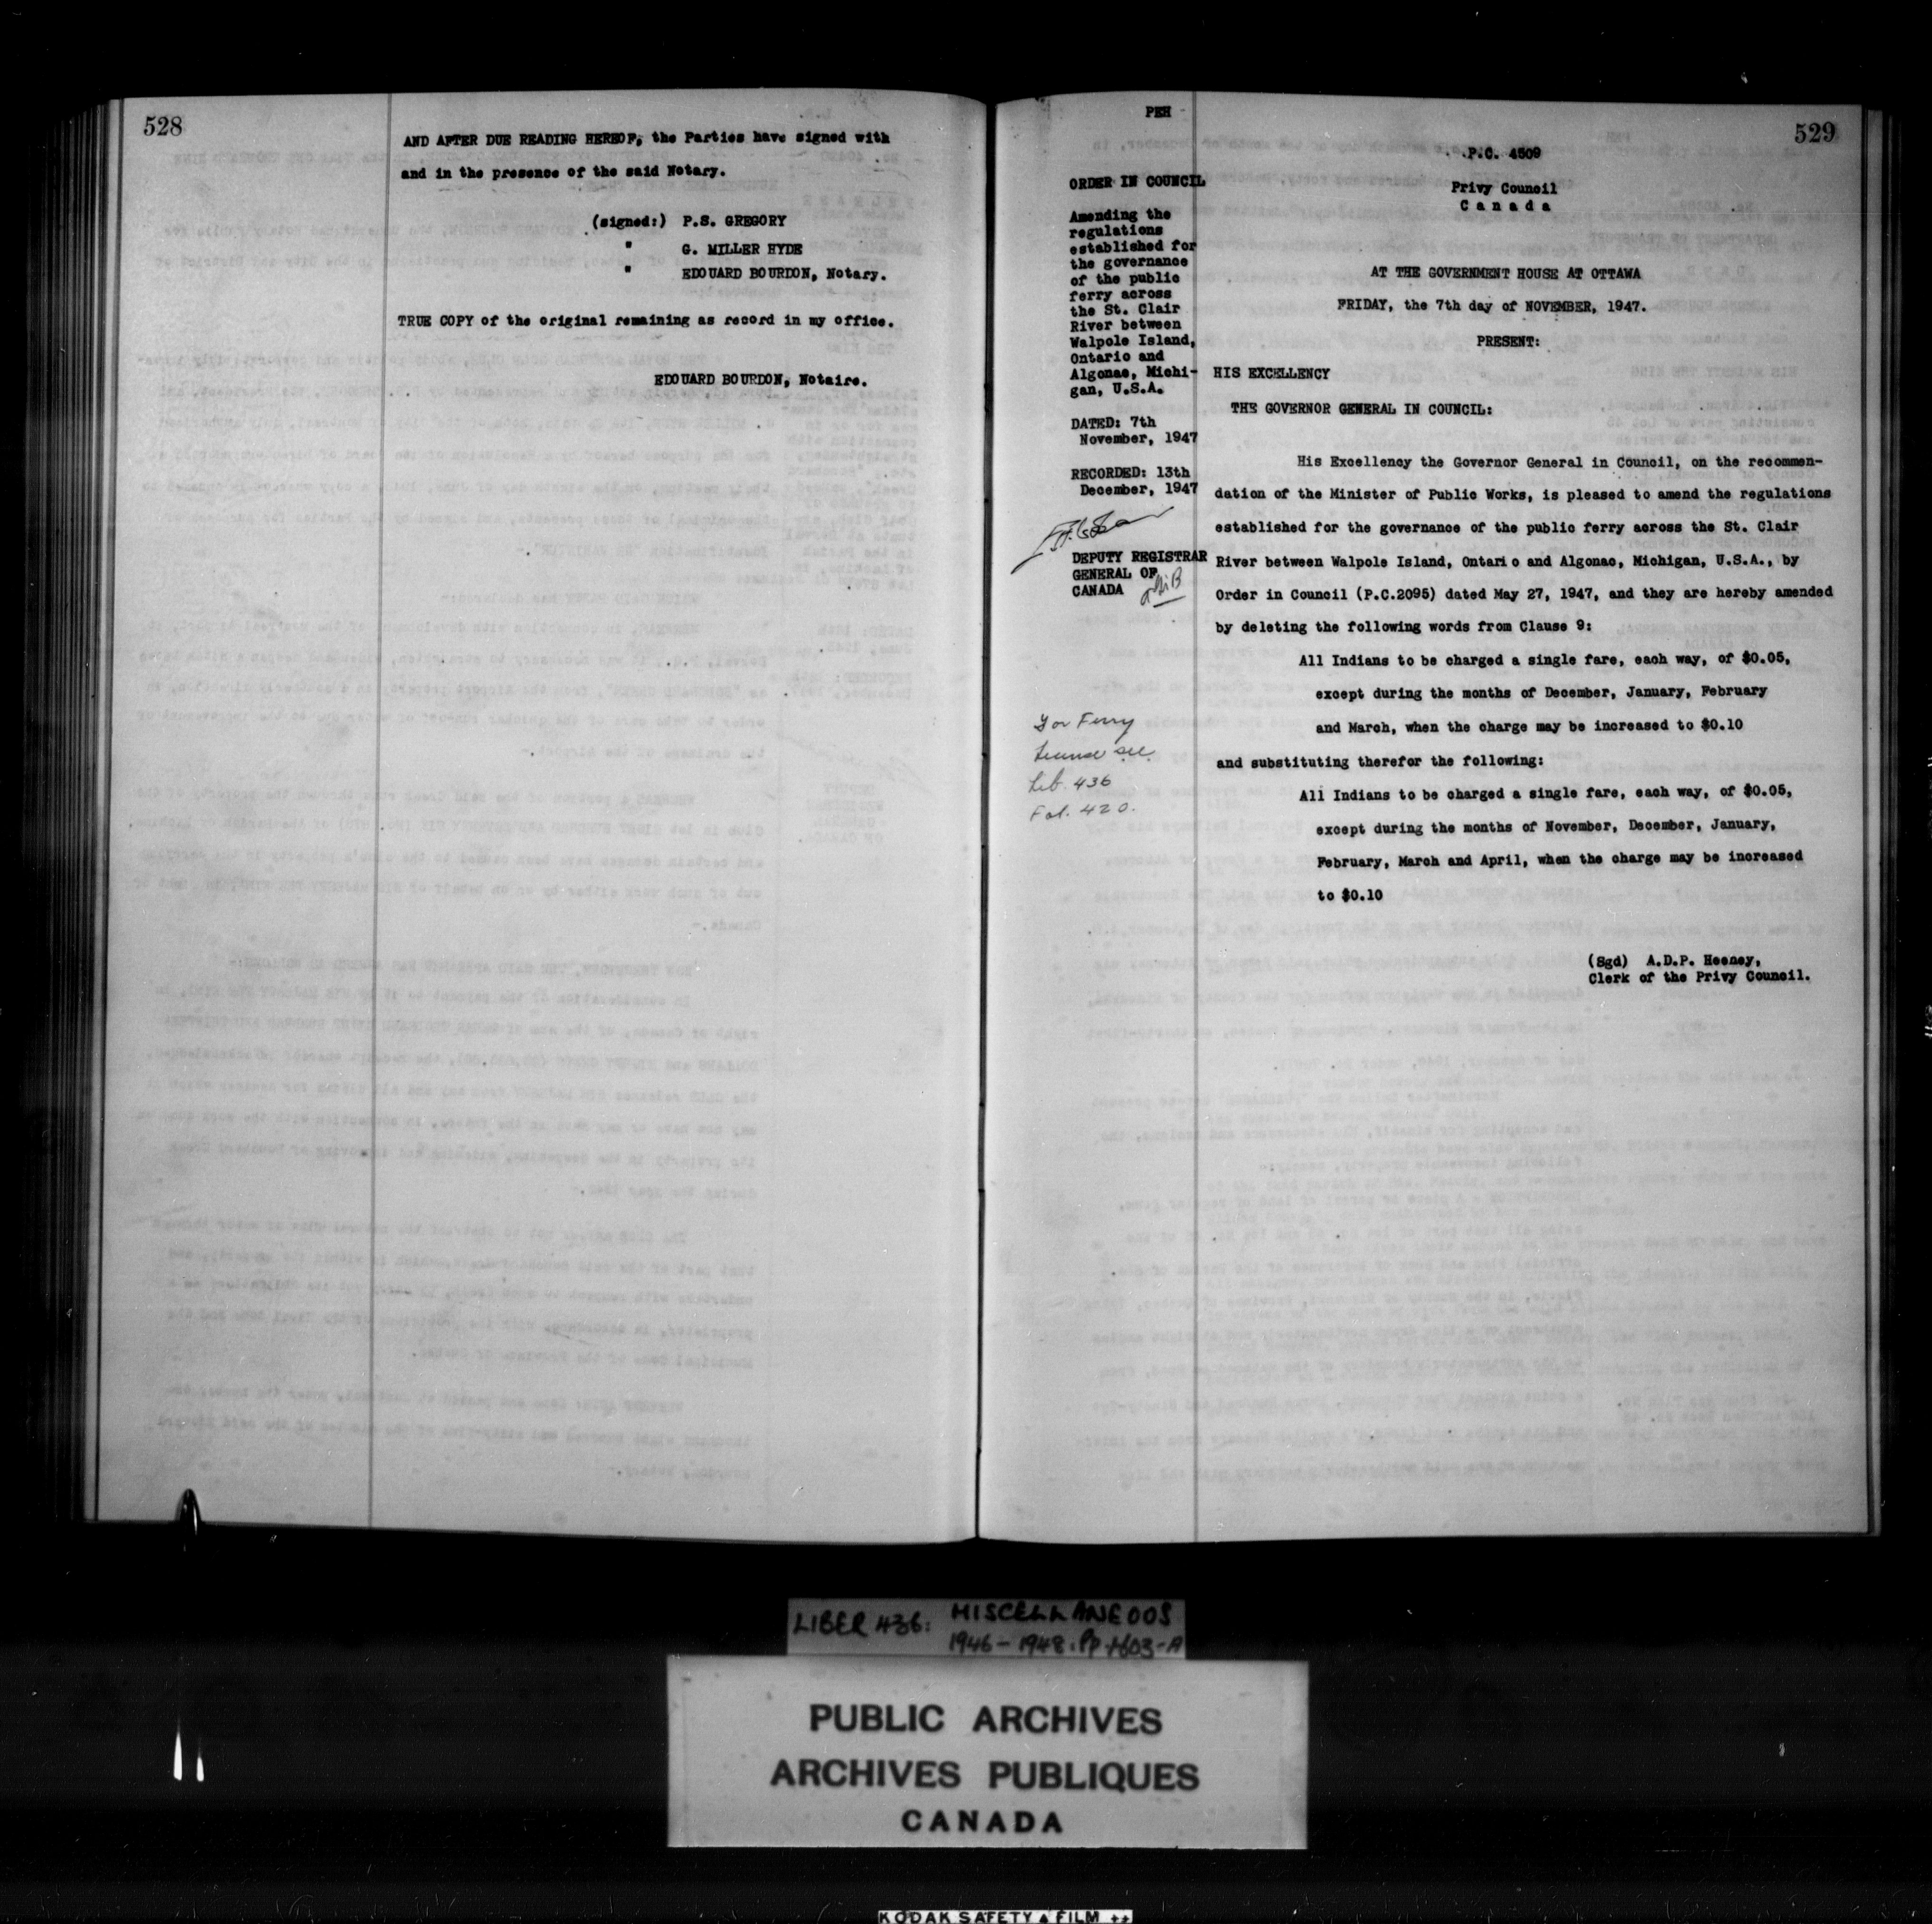 528
AND AFTER DUE READING HEREOF, the Parties have signed with
and in the presence of the said Notary.
(signed:) P.S. GREGORY
" G. MILLER HYDE
" EDOUARD BOURDON, Notary.
TRUE COPY of the original remaining as record in my office.
EDOUARD BOURDON, Notaire.
PEH
529
P.C. 4509
Privy Council
Canada
ORDER IN COUNCIL
Amending the
regulations
established for
the governance
of the public
ferry across
the St. Clair
River between
Walpole Island,
Ontario and
Algonac, Michi-
gan, U.S.A.
DATED: 7th
November, 1947
RECORDED: 13th
December, 1947
DEPUTY REGISTRAR
GENERAL OF
CANADA
For Ferry
license see
Lib. 436
Fol. 420.
AT THE GOVERNMENT HOUSE AT OTTAWA
FRIDAY, the 7th day of NOVEMBER, 1947.
PRESENT:
HIS EXCELLENCY
THE GOVERNOR GENERAL IN COUNCIL:
His Excellency the Governor General in Council, on the recommen-
dation of the Minister of Public Works, is pleased to amend the regulations
established for the governance of the public ferry across the St. Clair
River between Walpole Island, Ontario and Algonac, Michigan, U.S.A., by
Order in Council (P.C.2095) dated May 27, 1947, and they are hereby amended
by deleting the following words from Clause 9:
All Indians to be charged a single fare, each way, of $0.05,
except during the months of December, January, February
and March, when the charge may be increased to $0.10
and substituting therefor the following:
All Indians to be charged a single fare, each way, of $0.05,
except during the months of November, December, January,
February, March and April, when the charge may be increased
to $0.10
(Sgd) A.D.P. Heeney,
Clerk of the Privy Council.
LIBER 436: MISCELLANEOUS
1946-1948. Pp.
PUBLIC ARCHIVES
ARCHIVES PUBLIQUES
CANADA
KODAK SAFETY FILM